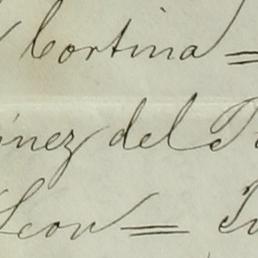 Cortina =
inez del
Leon =